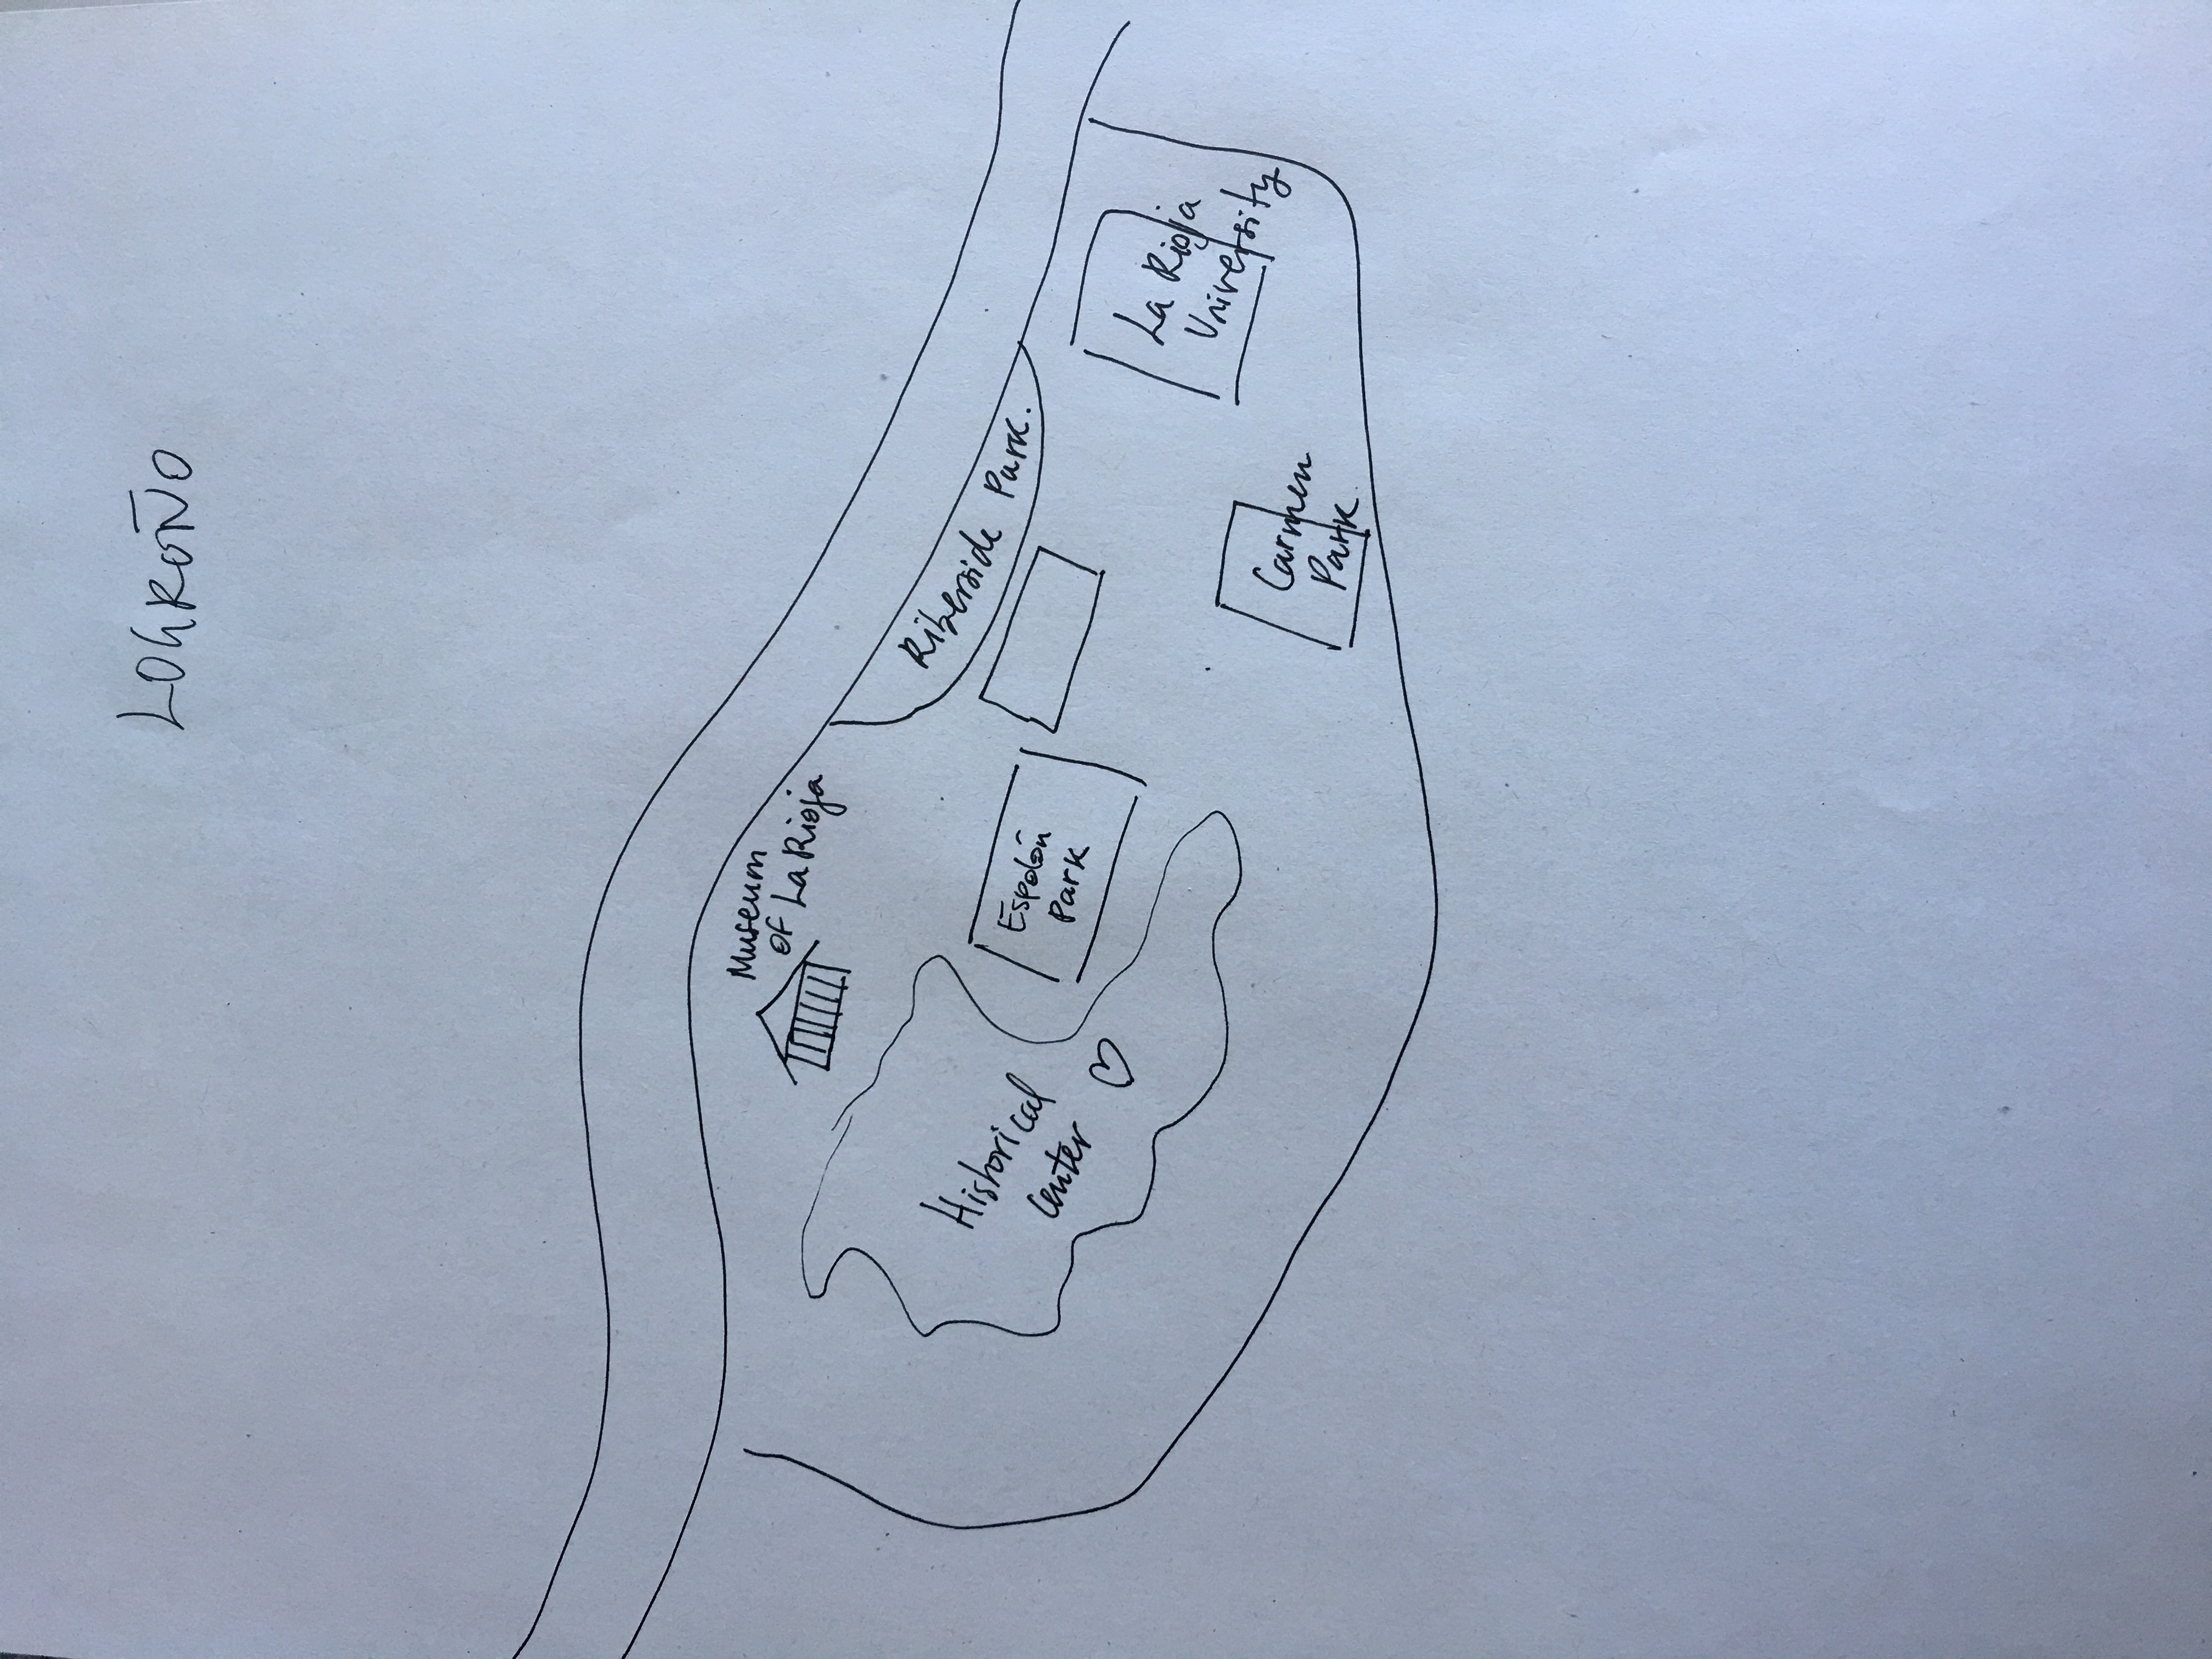 LOGROÑO
Museum
of La Rioja
Riberside Park.
Historical
center
Espolón
Park
La Rioja
University
Carmen
Park